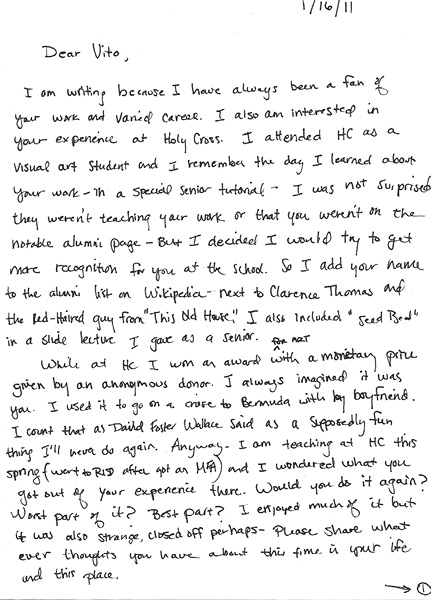 1/16/11
Dear Vito,
I am writing because I have always been a fan of
your work and varied career. I also am interested in
your experience at Holy Cross. I attended HC as a
visual art student and I remember the day I learned about
your work - in a special senior tutorial - I was not surprised
they weren't teaching your work or that you weren't on the
notable alumni page - But I decided I would try to get
more recognition for you at the school. So I add your name
to the alumni list on Wikipedia - next to Clarence Thomas and
the Red-Haired guy from "This Old House." I also included "Seed Bed"
in a slide lecture I gave as a senior.
for art
While at HC I won an award with a monetary prize
given by an anonymous donor. I always imagined it was
you. I used it to go on a cruise to Bermuda with my boyfriend.
I count that as David Foster Wallace said as a supposedly fun
thing I'll never do again. Anyway - I am teaching at HC this
spring (went to RISD after got an MFA) and I wondered what you
got out of your experience there. Would you do it again?
Worst part of it? Best part? I enjoyed much of it but
it was also strange, closed off perhaps - Please share what
ever thoughts you have about this time in your life
and this place.
→ 1